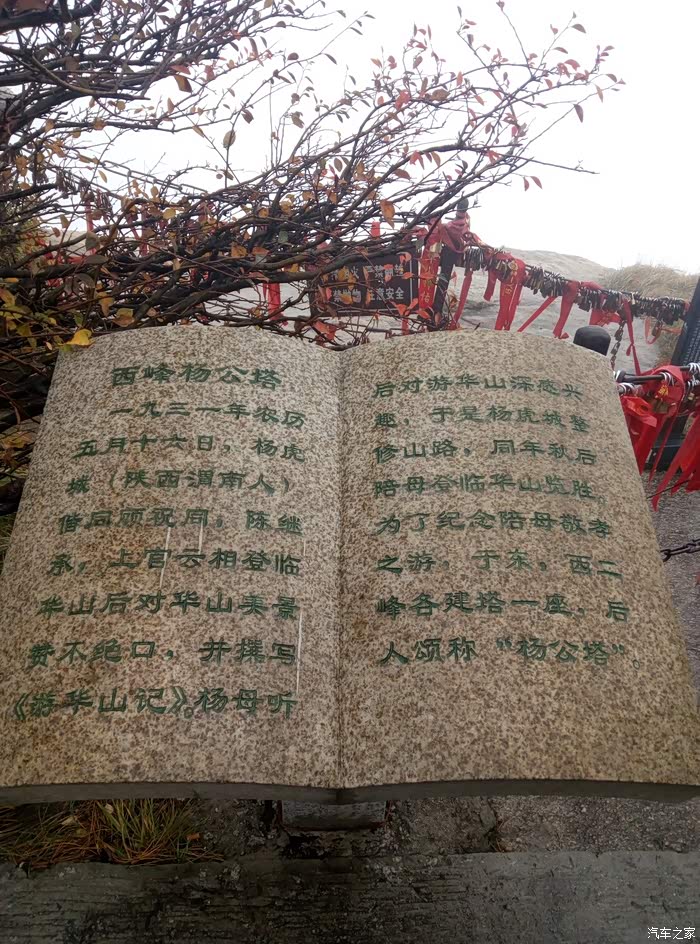 西峰杨公塔
一九三一年农历
五月十六日，杨虎
城（陕西渭南人）
偕同顾祝同，陈继
承，上官云相登临
华山后对华山美景
赞不绝口，并撰写
《游华山记》。杨母听
后对游华山深感兴
趣，于是杨虎城整
修山路，同年秋后
陪母登临华山览胜，
为了纪念陪母敬孝
之游，于东，西二
峰各建塔一座，后
人颂称“杨公塔”。
汽车之家